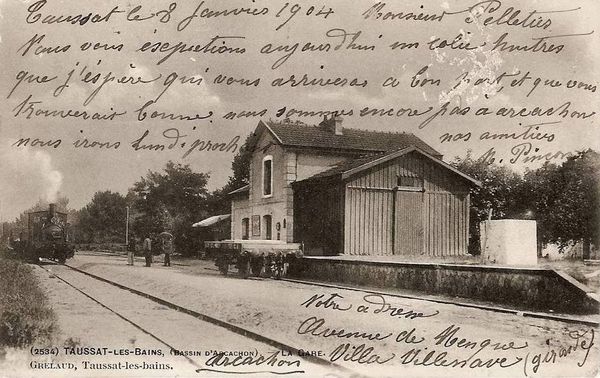 Taussat le 8 Janvier 1904 Monsieur Pelletier
Nous vous éxeputions aujourd'hui un colie huitres
que j'éspère qui vous arriveras a bon port et que vous
trouverait bonne. nous sommes encore pas à arcachon
nous irons lundi proch nos amitiés
(2534) TAUSSAT-LES-BAINS, (BASSIN D'ARCACHON). LA GARE.
GRELAUD, Taussat-les-bains.
Notre adresse
Avenue de
Villa
arcachon (gironde)